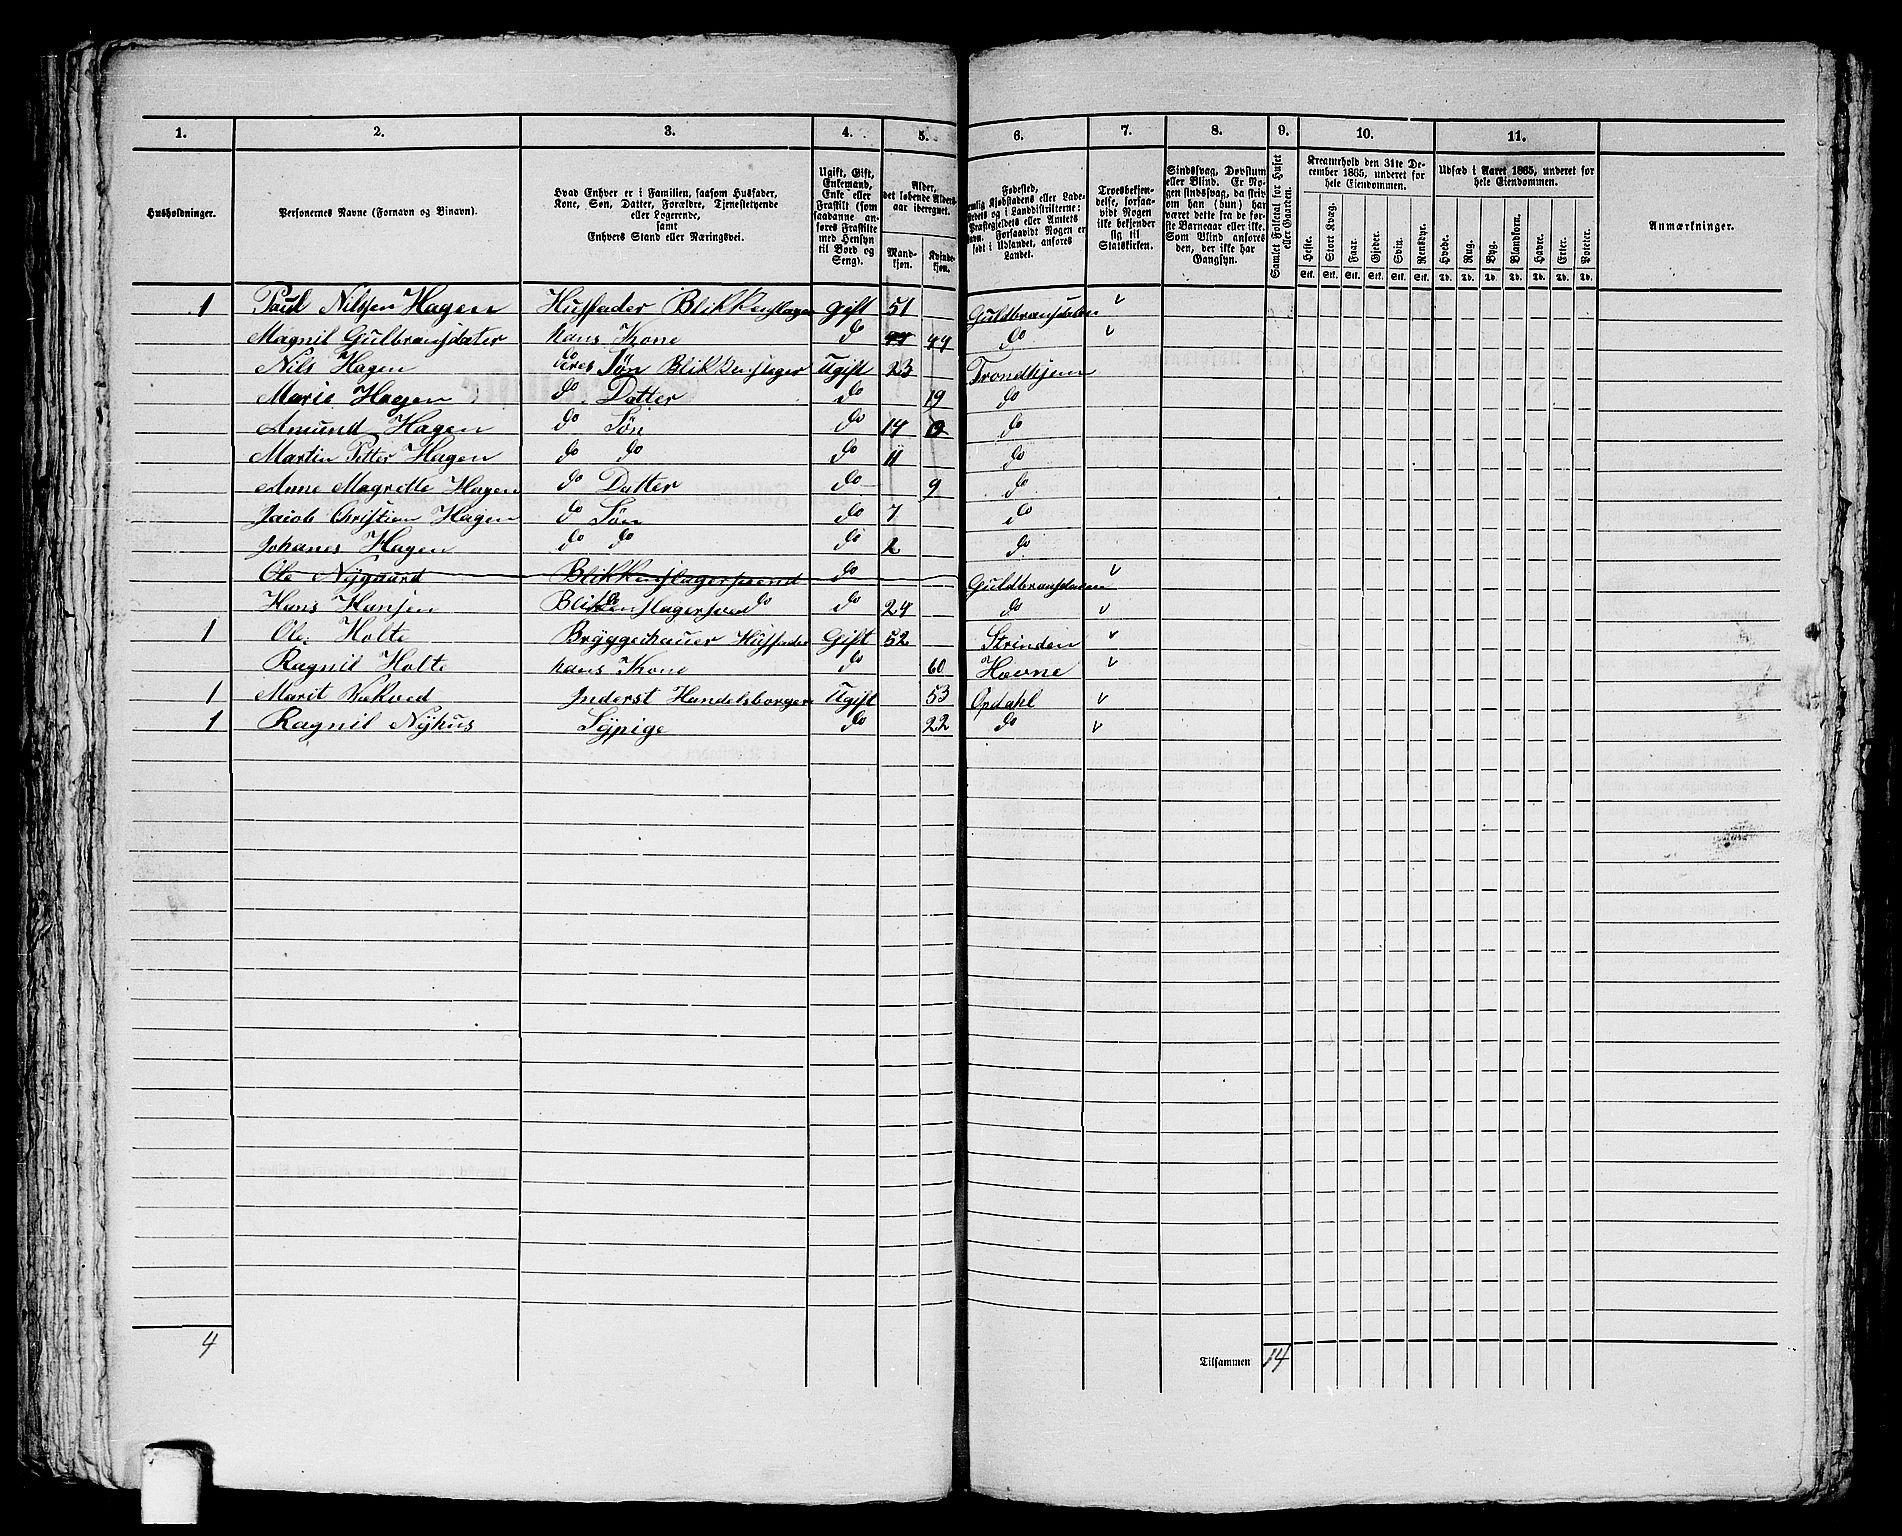 1. 2. 3. 4. 5. 6. 7. 8. 9. 10. 11.
Husholdninger.
Personernes Navne (Fornavn og Binavn).
Hvad Enhver er i Familien, saasom Husfader,
Kone, Søn, Datter, Forældre, Tjenestetyende
eller Logerende,
samt
Enhvers Stand eller Næringsvei.
Ugift, Gift,
Enkemand,
Enke eller
Fraskilt (som
saadanne an-
føres Fraskilte
med Hensyn
til Bord og
Seng).
Alder,
det løbende Alders-
aar iberegnet.
Mand-
kjøn.
Kvinde-
kjøn.
Fødested,
nemlig Kjøbstadens eller Lade-
stedets og i Landdistrikterne:
Præstegjeldets eller Amtets
Navn. Forsaavidt Nogen er
født i Udlandet, anføres
Landet.
Troesbekjen-
delse, forsaa-
vidt Nogen
ikke bekjender
sig til
Statskirken.
Sindssvag, Døvstum
eller Blind. Er No-
gen sindssvag, da skri-
bes om han (hun) har
været dette fra de før-
ste Barneaar eller ikke.
Som Blind anføres
den, der ikke har
Gangsyn.
Samlet Folketal for Huset
eller Gaarden.
Kreaturhold den 31te De-
cember 1865, underet for
hele Eiendommen.
Heste. Stort Kvæg. Faar. Gjeder. Svin. Rensdyr.
Stk. Stk. Stk. Stk. Stk. Stk.
Udsæd i Aaret 1865, underet for
hele Eiendommen.
Hvede. Rug. Byg. Blandkorn. Havre. Erter. Poteter.
Td. Td. Td. Td. Td. Td. Td.
Anmærkninger.
1 Paul Nilssen Hagen Husfader Blikkenslager Gift 51 Guldbransdalen v
Magnil Gulbransdater hans Kone do 44 do v
Nils Hagen deres Søn Blikkenslager Ugift 23 Trondhjem
Marie Hagen do Datter do 19 do
Amund Hagen do Søn do 14 do
Martin Petter Hagen do do do 11 do
Anne Magrette Hagen do Datter do 9 do
Jacob Christian Hagen do Søn do 7 do
Johanes Hagen do do do 2 do
Ole Nygaard Blikkenslagersvend do Guldbransdalen v
Hans Hansen Blikkenslagersvend do do 24 do v
1 Ole Holte Bryggehauer Husfader Gift 52 Strinden v
Ragnil Holte hans Kone do 60 Hevne v
1 Marit Vekved Inderst Handelsborger Ugift 53 Opdahl v
1 Ragnil Nyhus Sypige do 22 do v
4
Tilsammen 14